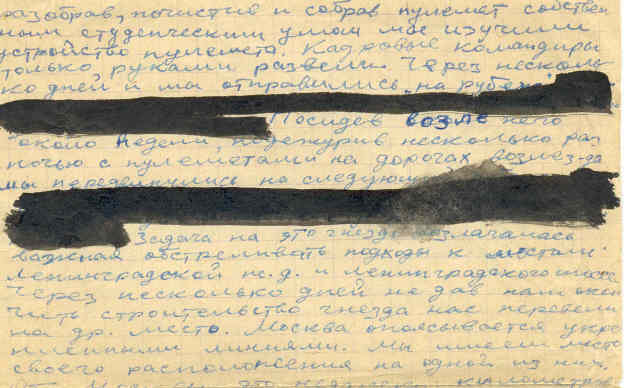 разобрав, почистив и собрав пулемет собствен
ным студенческим умом мы изучили
устройство пулемета. Кадровые командиры
только руками развели. Через несколь-
ко дней и мы отправились „на рубеж"
Посидев возле него
около недели, подежурив несколько раз
ночью с пулеметами на дорогах возле
мы передвинулись на следующ
Задача на это гнездо возлагалась
важная обстреливать подходы к мостам
Ленинградской ж.д. и ленинградского шоссе
Через несколько дней не дав нам окон
чить строительство гнезда нас перевели
на др. место. Москва опоясывается укре
пленными линиями. Мы имеем место
своего расположения на одной из них.
От это недалеко километров